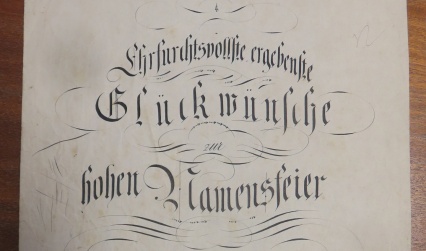 Ehrfurchtsvollste ergebenste
Glückwünsche
zur
hohen Namensfeier